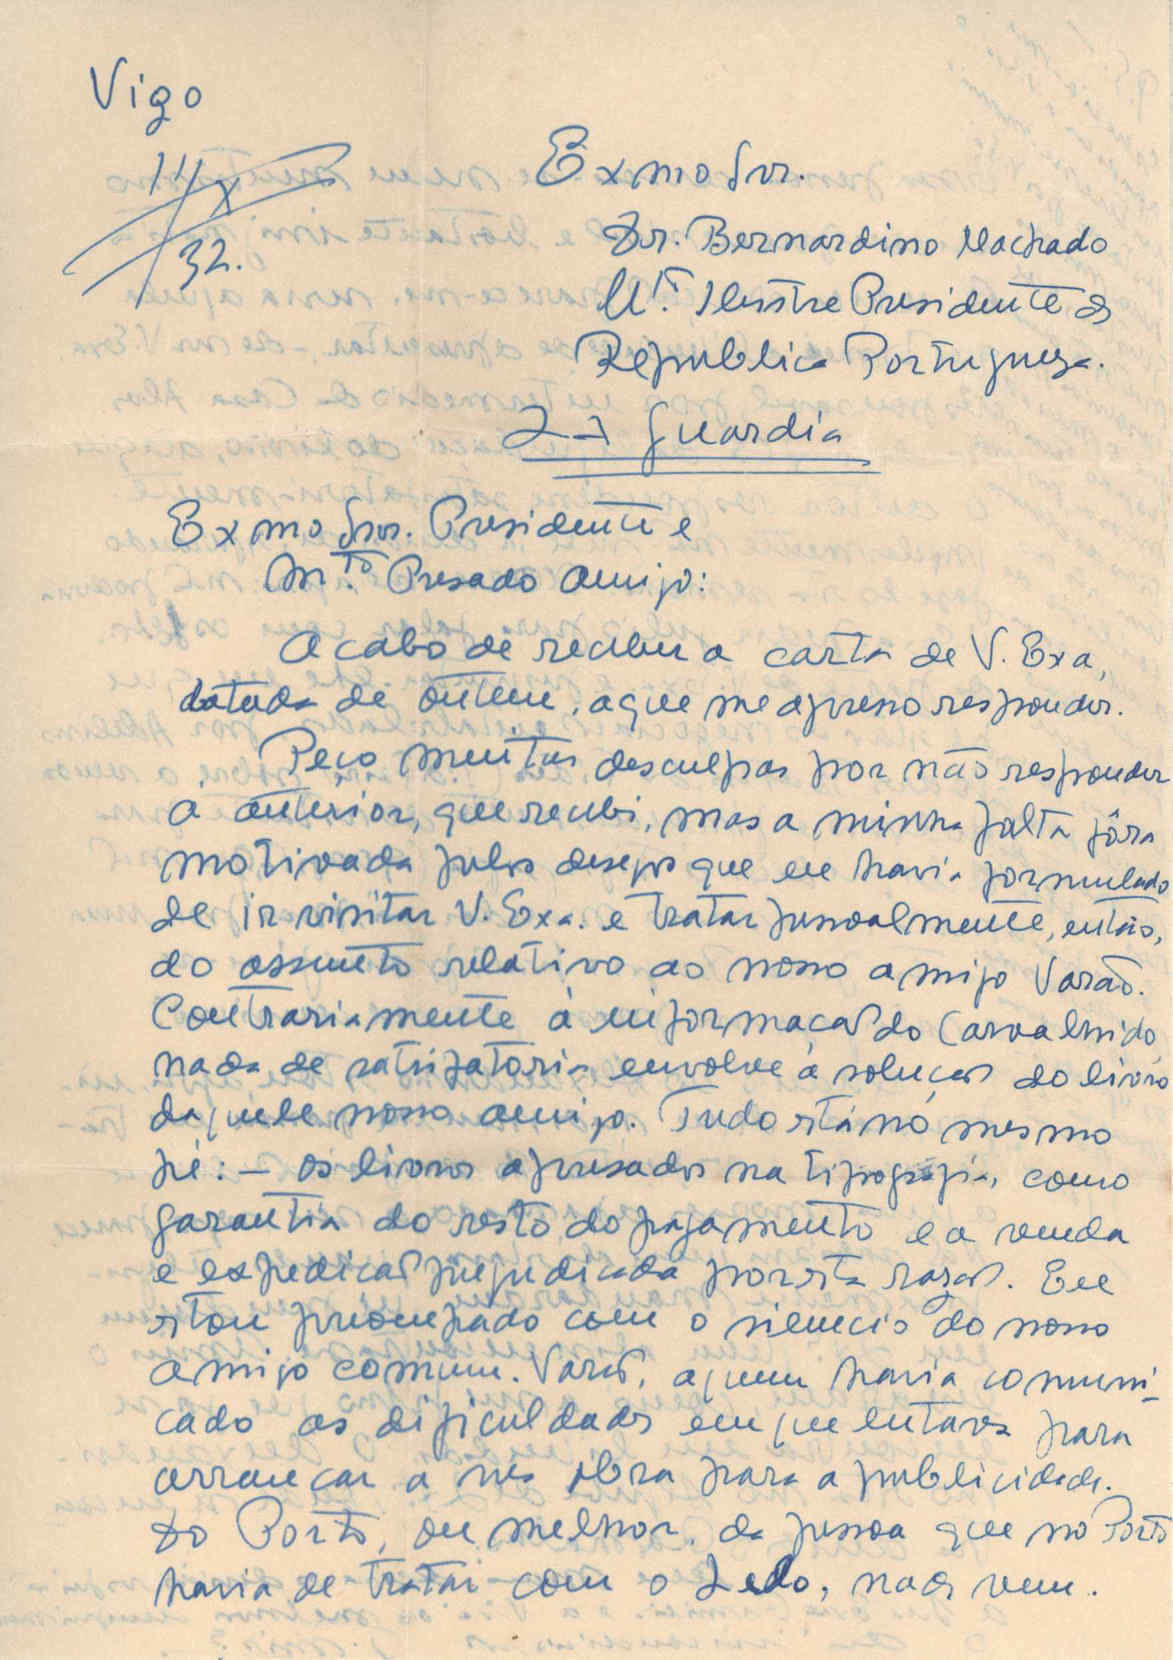 Vigo
14/X
32.
Exmo Snr.
Dr. Bernardino Machado
M.to Ilustre Presidente da
Republica Portuguesa.
La Guardia
Exmo Snr. Presidente e
M.to Presado Amigo:
Acabo de receber a carta de V. Exa,
datada de ôntem, a que me apresso responder.
Peço muitas desculpas por não responder
á anterior, que recebi, mas a minha falta fôra
motivada pelos desejos que eu havia formulado
de ir visitar V. Exa. e tratar pessoalmente, então,
do assunto relativo ao nosso amigo Varão.
Contrariamente á informação do Carvalhido,
nada de satisfatorio envolve a solução do livro
daquele nosso amigo. Tudo está no mesmo
pé: – os livros apresados na tipografia, como
garantia do resto do pagamento e a venda
e expedição prejudicada por esta razão. Eu
estou preocupado com o silencio do nosso
amigo comum. Varão, a quem havia comuni-
cado as dificuldades em que lutava para
arrancar a sua obra para a publicidade.
Do Porto, ou melhor, da pessoa que no Porto
havia de tratar com o Ledo, nada vem.